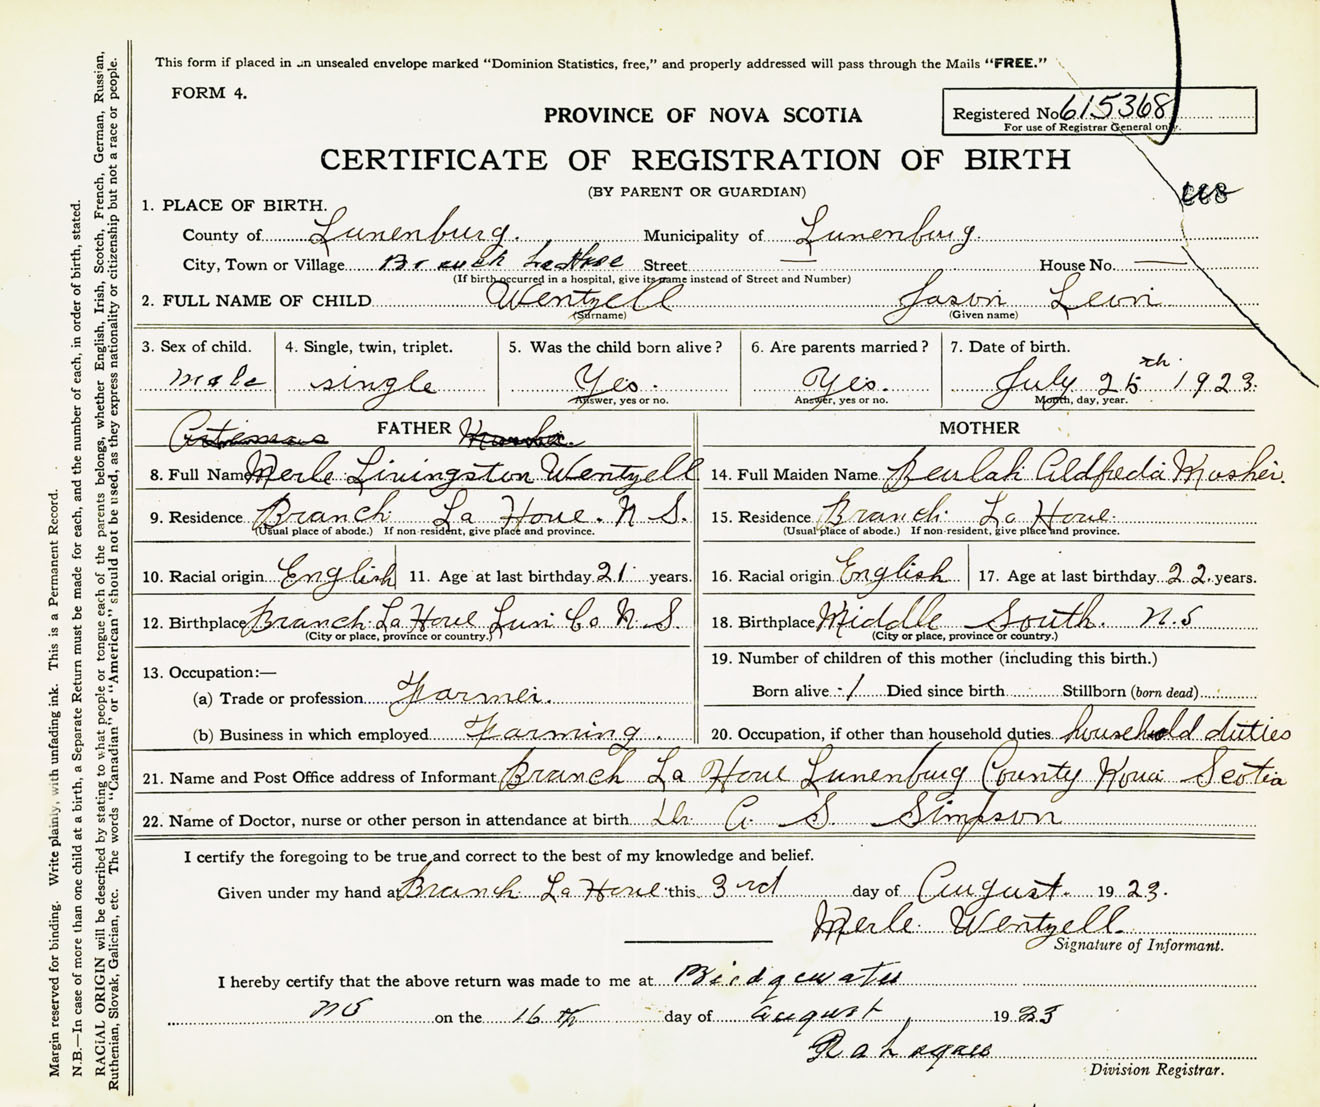 This form if placed in an unsealed envelope marked "Dominion Statistics, free," and properly addressed will pass through the Mails "FREE."
FORM 4.
PROVINCE OF NOVA SCOTIA
Registered No. 615368
For use of Registrar General only.
CERTIFICATE OF REGISTRATION OF BIRTH
(BY PARENT OR GUARDIAN)
1. PLACE OF BIRTH.
County of Lunenburg. Municipality of Lunenburg.
City, Town or Village Branch LaHave Street — House No. —
(If birth occurred in a hospital, give its name instead of Street and Number)
2. FULL NAME OF CHILD Wentzell Jason Leon
(Surname) (Given name)
3. Sex of child. 4. Single, twin, triplet. 5. Was the child born alive? 6. Are parents married? 7. Date of birth.
male single Yes. Yes. July 25th 1923.
Answer, yes or no. Answer, yes or no. Month, day, year.
FATHER MOTHER
8. Full Name Merle Livingston Wentzell 14. Full Maiden Name Beulah Aldfreda Mosher.
9. Residence Branch La Have. N.S. 15. Residence Branch La Have.
(Usual place of abode.) If non-resident, give place and province. (Usual place of abode.) If non-resident, give place and province.
10. Racial origin English 11. Age at last birthday 21 years. 16. Racial origin English 17. Age at last birthday 22. years.
12. Birthplace Branch La Have Lun Co N.S. 18. Birthplace Middle South. N.S
(City or place, province or country.) (City or place, province or country.)
13. Occupation:— 19. Number of children of this mother (including this birth.)
(a) Trade or profession Farmer. Born alive 1 Died since birth Stillborn (born dead)
(b) Business in which employed Farming. 20. Occupation, if other than household duties household duties
21. Name and Post Office address of Informant Branch La Have Lunenburg County Nova Scotia
22. Name of Doctor, nurse or other person in attendance at birth Dr. A. S. Simpson
I certify the foregoing to be true and correct to the best of my knowledge and belief.
Given under my hand at Branch La Have this 3rd day of August. 1923.
Merle Wentzell.
Signature of Informant.
I hereby certify that the above return was made to me at Bridgewater
NS on the 16th day of August, 1923
Division Registrar.
Margin reserved for binding. Write plainly, with unfading ink. This is a Permanent Record.
N.B.—In case of more than one child at a birth, a Separate Return must be made for each, and the number of each, in order of birth, stated.
RACIAL ORIGIN will be described by stating to what people or tongue each of the parents belongs, whether English, Irish, Scotch, French, German, Russian,
Ruthenian, Slovak, Galician, etc. The words "Canadian" or "American" should not be used, as they express nationality or citizenship but not a race or people.